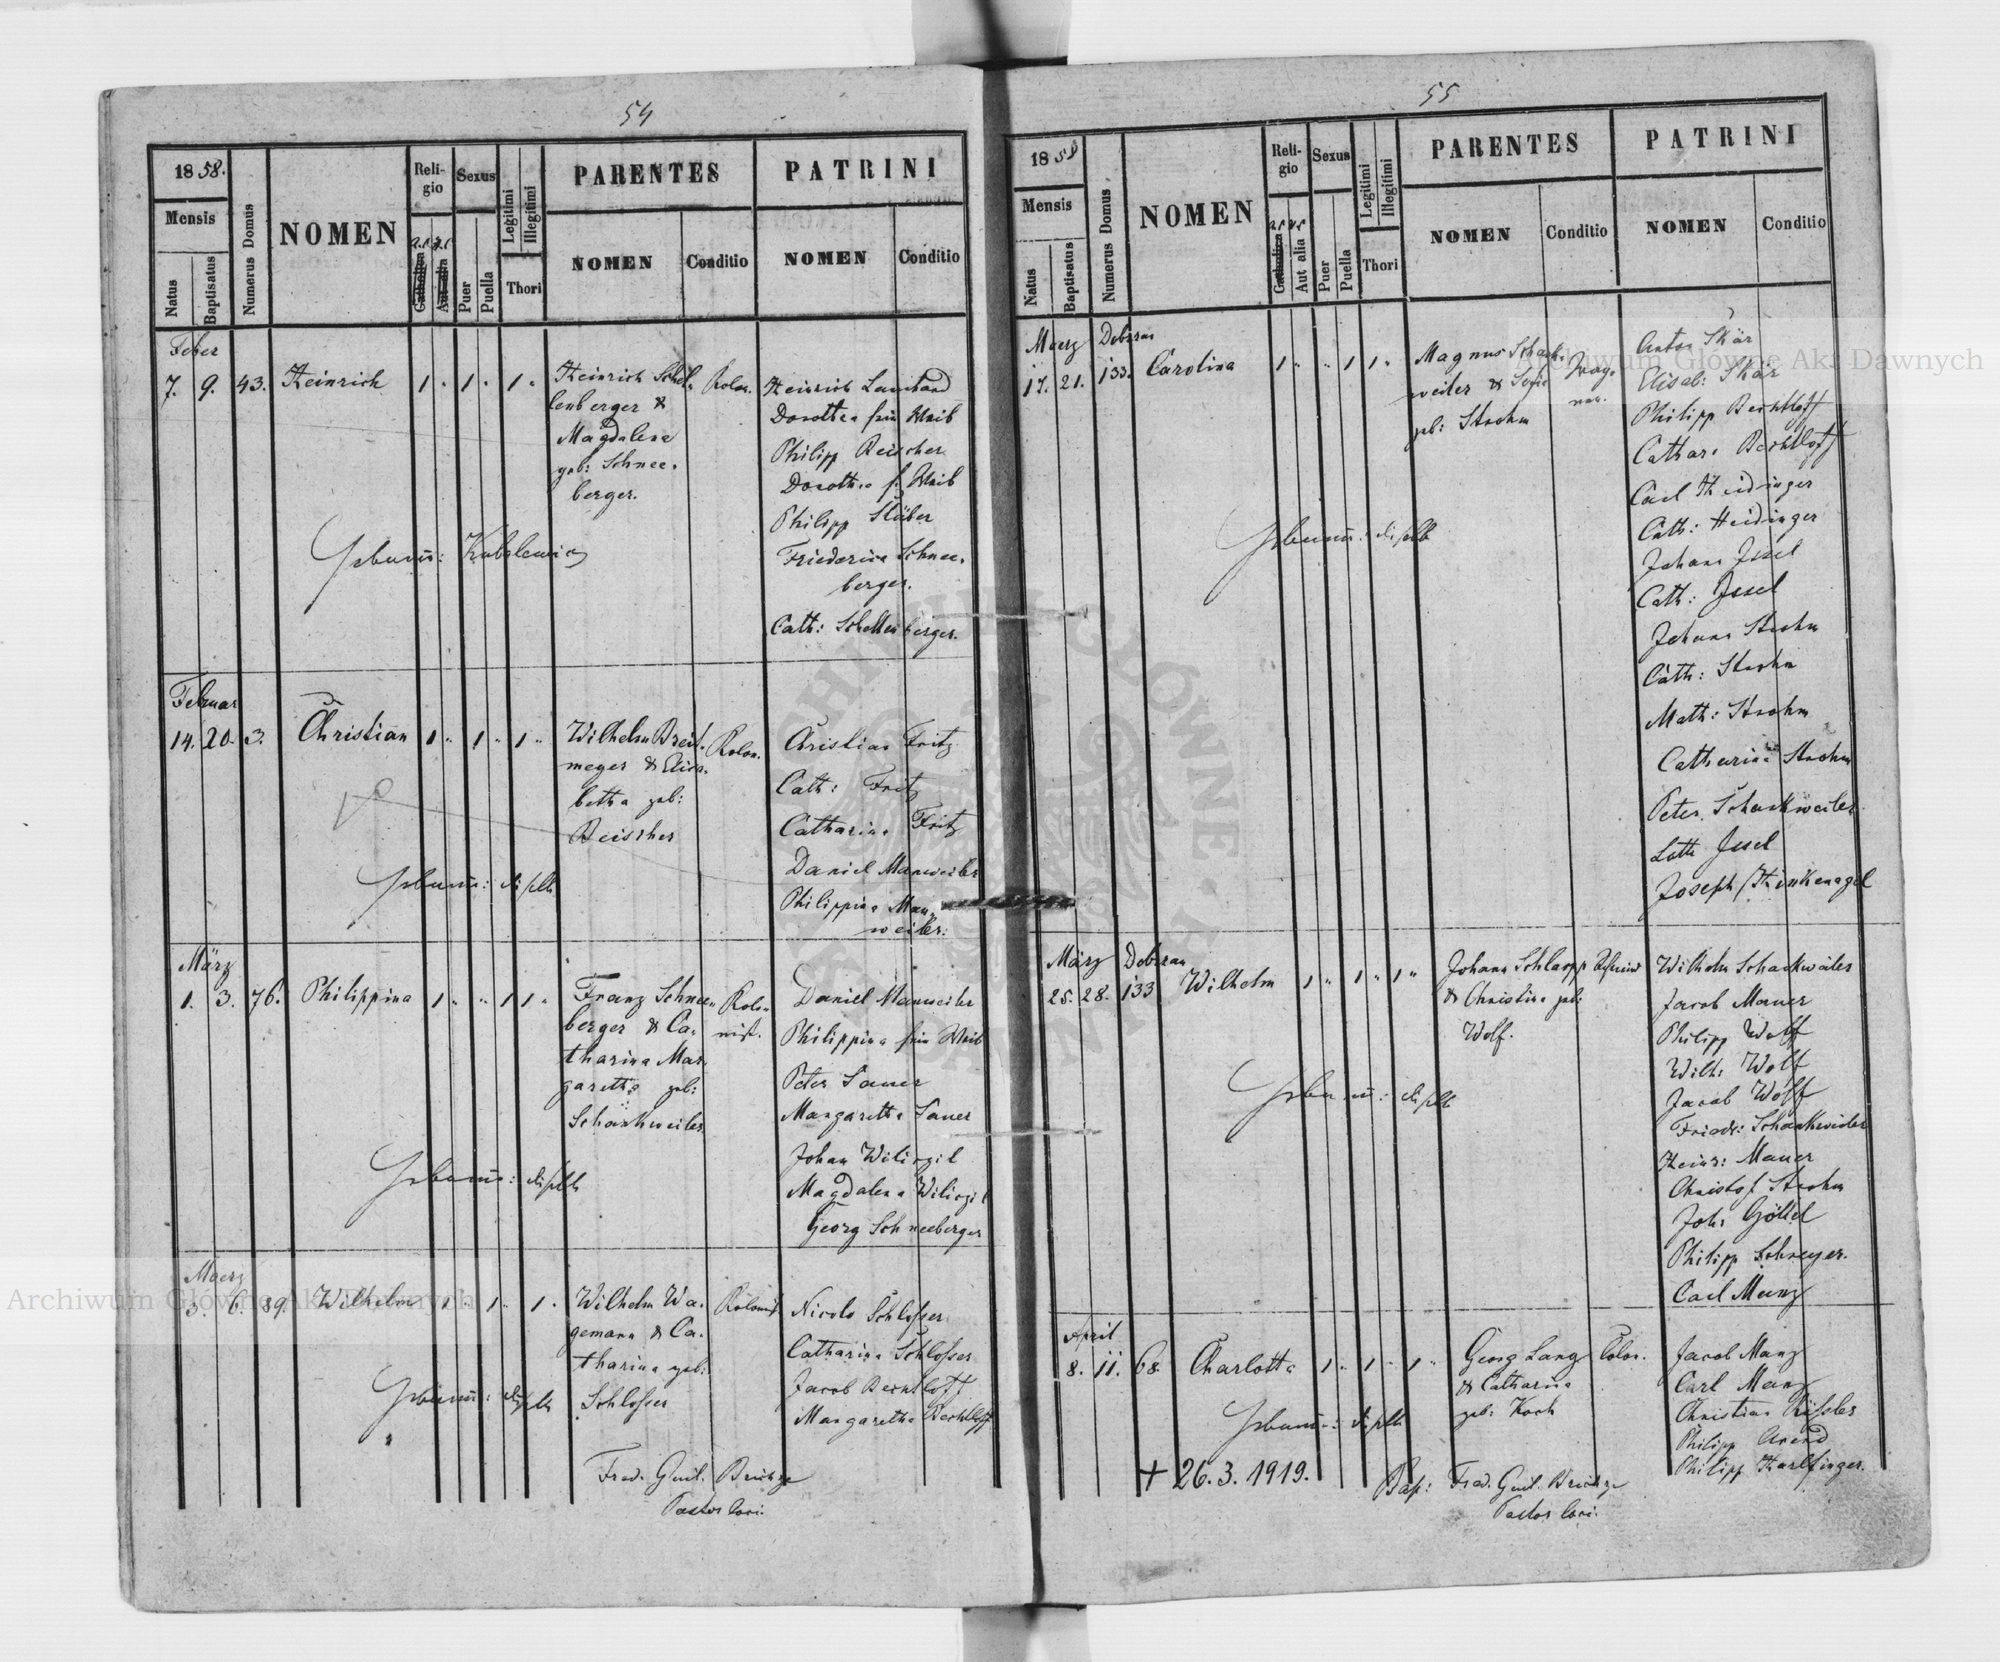 54
1858.
Mensis
Natus
Baptisatus
Numerus Domus
NOMEN
Religio
Catholica
Aut alia
Sexus
Puer
Puella
Legitimi
Illegitimi
Thori
PARENTES
NOMEN
Conditio
PATRINI
NOMEN
Conditio
Feber
7. 9. 43. Heinrich 1 " 1 " 1 "
Heinrich Schel-
lenberger &
Magdalena
geb: Schnee-
berger.
Kolon.
Heinrich Lanihand
Dorothea sein Weib
Philipp Reischer
Dorothea s. Weib
Philipp Stüber
Friederica Schnee-
berger.
Cath: Schellenberger.
Februar
14. 20. 3. Christian 1 " 1 " 1 "
Wilhelm Breit-
meyer & Elisa-
betha geb:
Reischer
Kolon.
Christian Fritz
Cath: Fritz
Catharina Fritz
Daniel Manweiler
Philippina Man-
weiler.
März
1. 3. 76. Philippina 1 " " 1 1 "
Franz Schnee-
berger & Ca-
tharina Mar-
garetha geb:
Schankweiler
Kolo-
nist.
Daniel Manweiler
Philippina sein Weib
Peter Sauer
Margaretha Sauer
Johan
Magdalena
Georg Schneeberger
Maerz
3. 6. 89. Wilhelm 1 " 1 " 1 "
Wilhelm Wa-
gemann & Ca-
tharina geb:
Schlosser
Kolonist
Nicolo Schlosser
Catharina Schlosser
Jacob Bechtloff
Margaretha Bechtloff
Fred. Guil.
Pastor loci.
55
1858
Mensis
Natus
Baptisatus
Numerus Domus
NOMEN
Religio
Catholica
Aut alia
Sexus
Puer
Puella
Legitimi
Illegitimi
Thori
PARENTES
NOMEN
Conditio
PATRINI
NOMEN
Conditio
Maerz
17. 21. 133. Carolina 1 " " 1 1 "
Magnus Schank-
weiler & Sofie
geb: Strohm
Wag-
ner.
Anton Skär
Elisab: Skär
Philipp Bechtloff
Cathar. Bechtloff
Carl Heidinger
Cath: Heidinger
Johann Jssel
Cath: Jssel
Johann Strohm
Cath: Strohm
Math: Strohm
Catharina Strohm
Peter Schankweiler
Jssel
Joseph Hinkenagel
März
25. 28. 133 Wilhelm 1 " 1 " 1 "
Johann Schlapp
& Christina geb:
Wolf.
Wilhelm Schankweiler
Jacob Mauer
Philipp Wolf
Wilh: Wolf
Jacob Wolf
Friedr: Schankweiler
Heinr: Mauer
Christof Strohm
Joh: Göttel
Philipp Schreyer.
Carl Manz
April
8. 11. 68 Charlotta 1 " 1 " 1 "
Georg Lang
& Catharina
geb: Koch
Colon.
Jacob Manz
Carl Manz
Christian
Philipp Arend
Philipp Harlfinger.
+ 26.3.1919.
Bap: Fred. Guil.
Pastor loci.
Archiwum Główne Akt Dawnych
Archiwum Główne Akt Dawnych